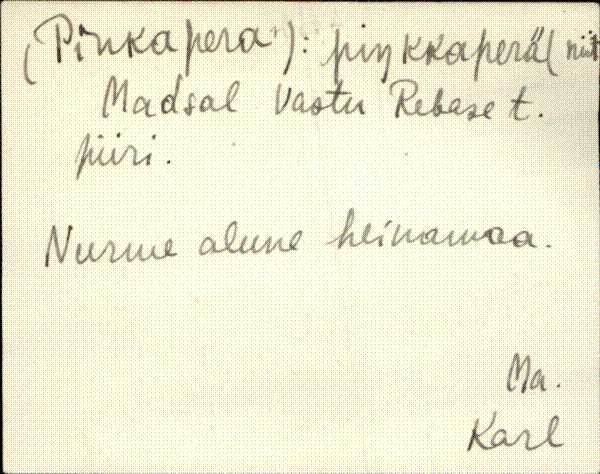 (Pinkapera): piŋkkaperäl niit
Madsal vastu Rebase t.
piiri.
Nurme alune heinamaa.
Ma.
Karl